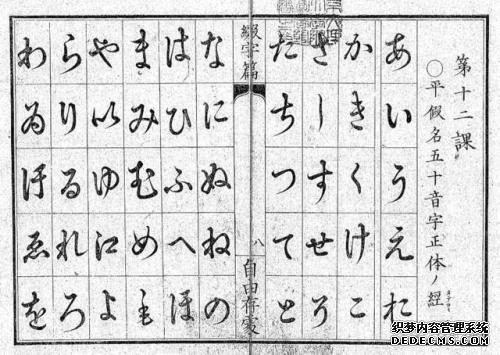 第十二課
○平假名五十音字正体ノ經
あいうえお
かきくけこ
さしすせそ
たちつてと
綴字篇
八
自由
なにぬねの
はひふへほ
まみむめも
や以ゆ江よ
らりるれろ
わゐうゑを
织梦内容管理系统
DEDECMS.COM